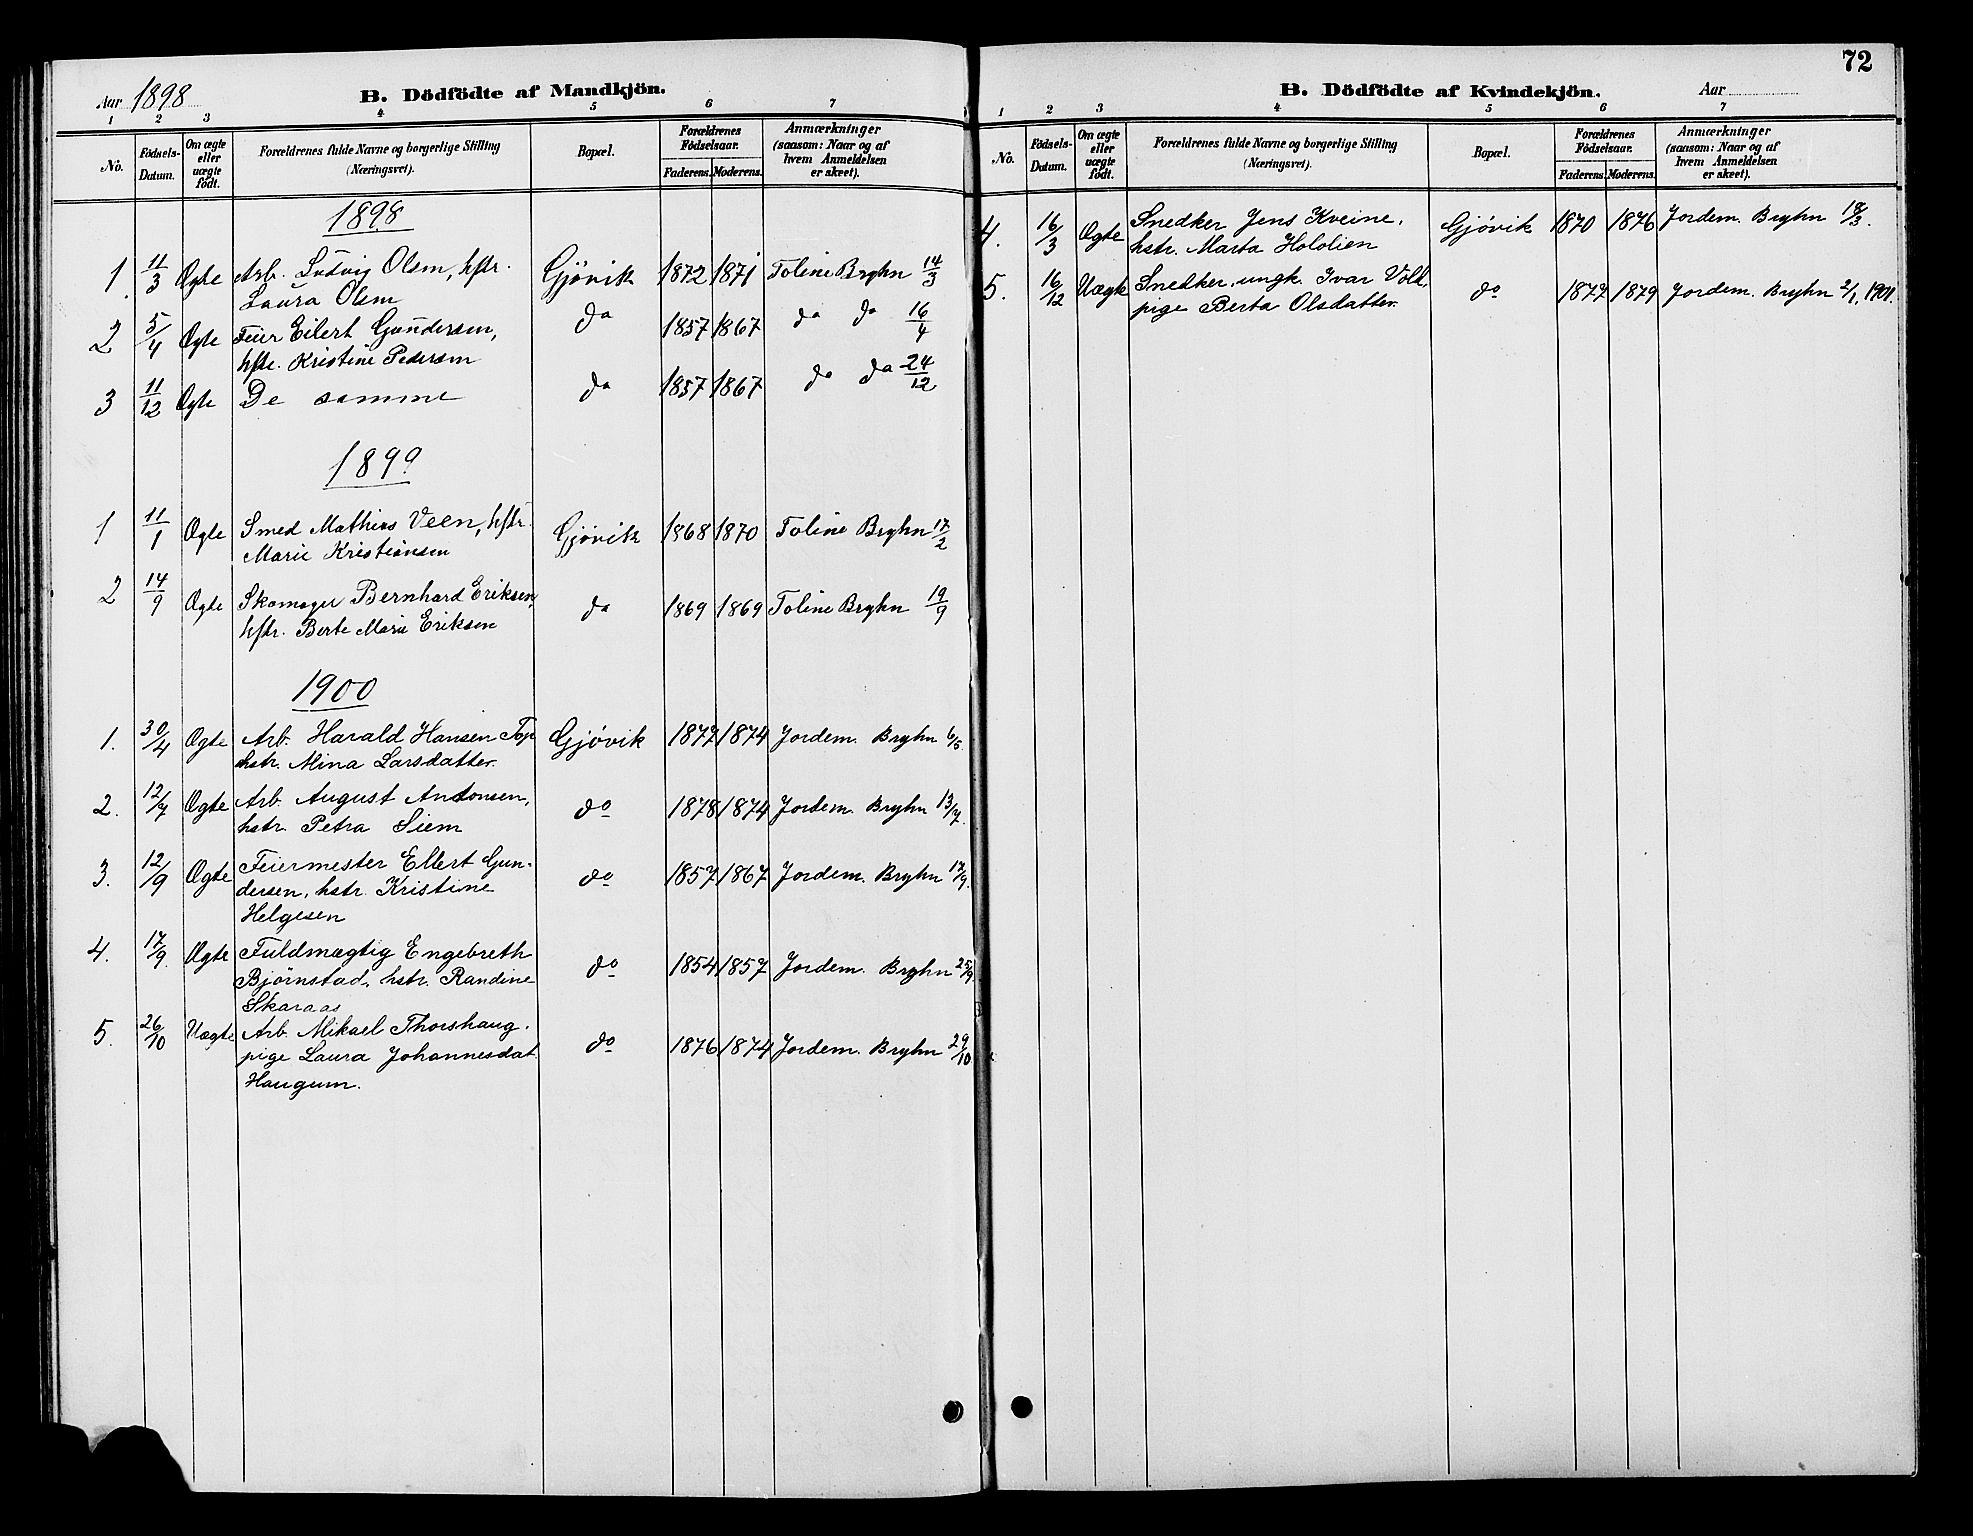 Aar 1898
B. Dödfödte af Mandkjön.
1 2 3 4 5 6 7
No. Födsels-Datum. Om ægte eller uægte födt. Forældrenes fulde Navne og borgerlige Stilling (Næringsvei). Bopæl. Forældrenes Födselsaar. Faderens. Moderens. Anmærkninger (saasom: Naar og af hvem Anmeldelsen er skeet).
1898
1. 11/3 Ægte Arb. Ludvig Olsen, hstr. Gjövik 1872 1871 Toline Bryhn 14/3
Laura Olsen
2 5/4 Ægte Feier Eilert Gundersen, do 1857 1867 do do 16/4
hstr. Kristine Pedersen
3 11/12 Ægte De samme do 1857 1867 do do 24/12
1899
1 11/1 Ægte Smed Mathias Veen, hstr. Gjövik 1868 1870 Toline Bryhn 17/2
Marie Kristiansen
2 14/9 Ægte Skomager Bernhard Eriksen, do 1869 1869 Toline Bryhn 19/9
hstr. Berte Marie Eriksen
1900
1. 30/4 Ægte Arb. Harald Hansen Gjövik 1877 1874 Jordem. Bryhn 6/5.
hstr. Mina Larsdatter.
2. 12/7 Ægte Arb. August Antonsen, do 1878 1874 Jordem. Bryhn 13/7.
hstr. Petra Siem
3. 12/9 Ægte Feiermester Ellert Gun-
dersen, hstr. Kristine do 1857 1867 Jordem. Bryhn 17/9.
Helgesen
4. 17/9. Ægte Fuldmægtig Engebreth
Bjørnstad, hstr. Randine do 1854 1857 Jordem. Bryhn 25/9.
Skaraas
5. 26/10 Uægte Arb. Mikael Thorshaug.
pige Laura Johannesdat. do 1876 1874 Jordem. Bryhn 29/10
Haugum.
72
B. Dödfödte af Kvindekjön. Aar
1 2 3 4 5 6 7
No. Födsels-Datum. Om ægte eller uægte födt. Forældrenes fulde Navne og borgerlige Stilling (Næringsvei). Bopæl. Forældrenes Födselsaar. Faderens. Moderens. Anmærkninger (saasom: Naar og af hvem Anmeldelsen er skeet).
4. 16/3 Ægte Snedker Jens Kveine, Gjövik 1870 1876 Jordem. Bryhn 18/3.
hstr. Marta Hololien
5. 16/12 Uægte Snedker, ungk. Ivar Vold, do 1877 1879 Jordem. Bryhn 2/1, 1901.
pige Berta Olsdatter.